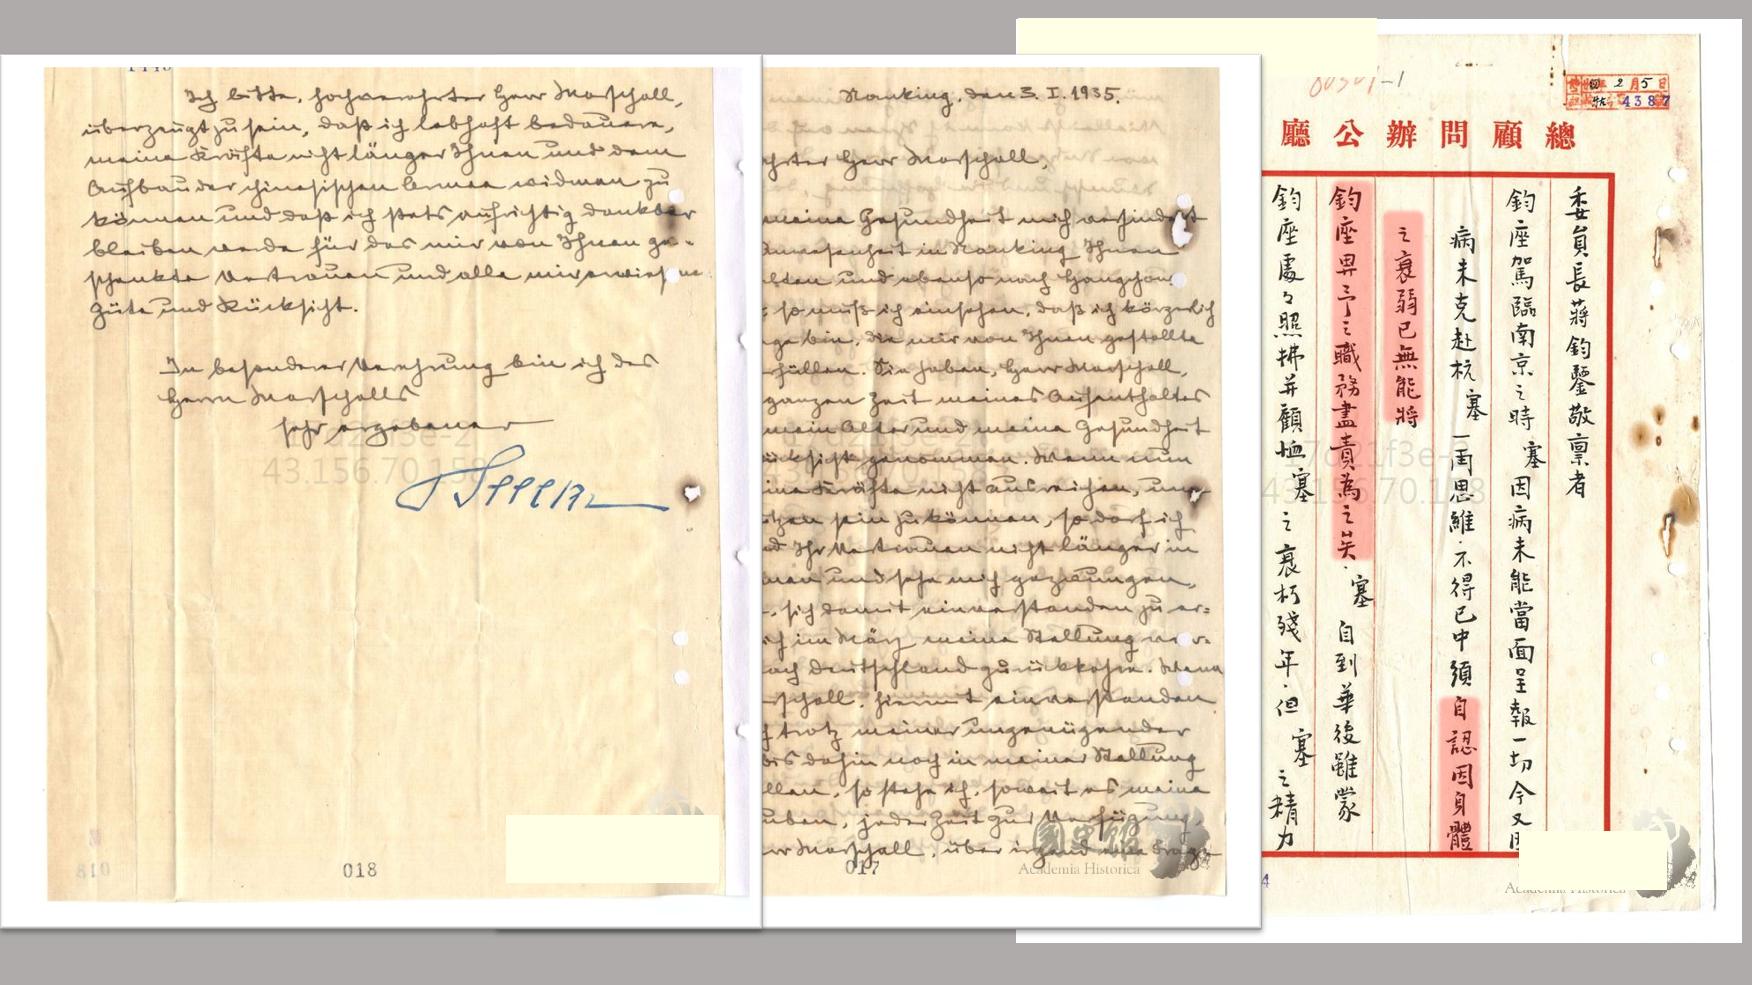 Ich bitte, hochverehrter Herr Marschall,
überzeugt zu sein, daß ich lebhaft bedauere,
meine Kräfte nicht länger Ihnen und dem
Aufbau der chinesischen Armee widmen zu
können und daß ich stets aufrichtig dankbar
bleiben werde für das mir von Ihnen ge-
schenkte Vertrauen und alle mir erwiesene
Güte und Rücksicht.
In besonderer Verehrung bin ich des
Herrn Marschalls
sehr ergebener
43.156.70.158
018
Nanking, den 3. I. 1935.
Herr Marschall,
meine Gesundheit mich verhindert
in Nanking Ihnen
und ebenso nach Hangchow
so muß ich einsehen, daß ich körperlich
bin, die mir von Ihnen gestellte
Sie haben, Herr Marschall,
ganzen Zeit meines Aufenthaltes
mein Alter und meine Gesundheit
genommen. Wenn nun
Kräfte nicht ausreichen, um
sein zu können, so darf ich
Ihr Vertrauen nicht länger in
und sehe mich gezwungen,
sich damit einverstanden zu er=
im März meine Stellung
Deutschland zurückkehre. Wenn
hiermit einverstanden
trotz meiner ungenügenden
bis dahin noch in meiner Stellung
so stehe ich, soweit es meine
jeder Zeit zur Verfügung
Marschall, über irgend eine Frage
017
國史館
Academia Historica
2月5日
4387
總顧問辦公廳
委員長蔣鈞鑒敬稟者
鈞座駕臨南京之時塞因病未能當面呈報一切今又因
病未克赴杭塞一再思維不得已中須自認因身體
之衰弱已無能將
鈞座畀予之職務盡責為之矣塞自到華後雖蒙
鈞座處々照拂并顧恤塞之衰朽殘年但塞之精力
Academia Historica